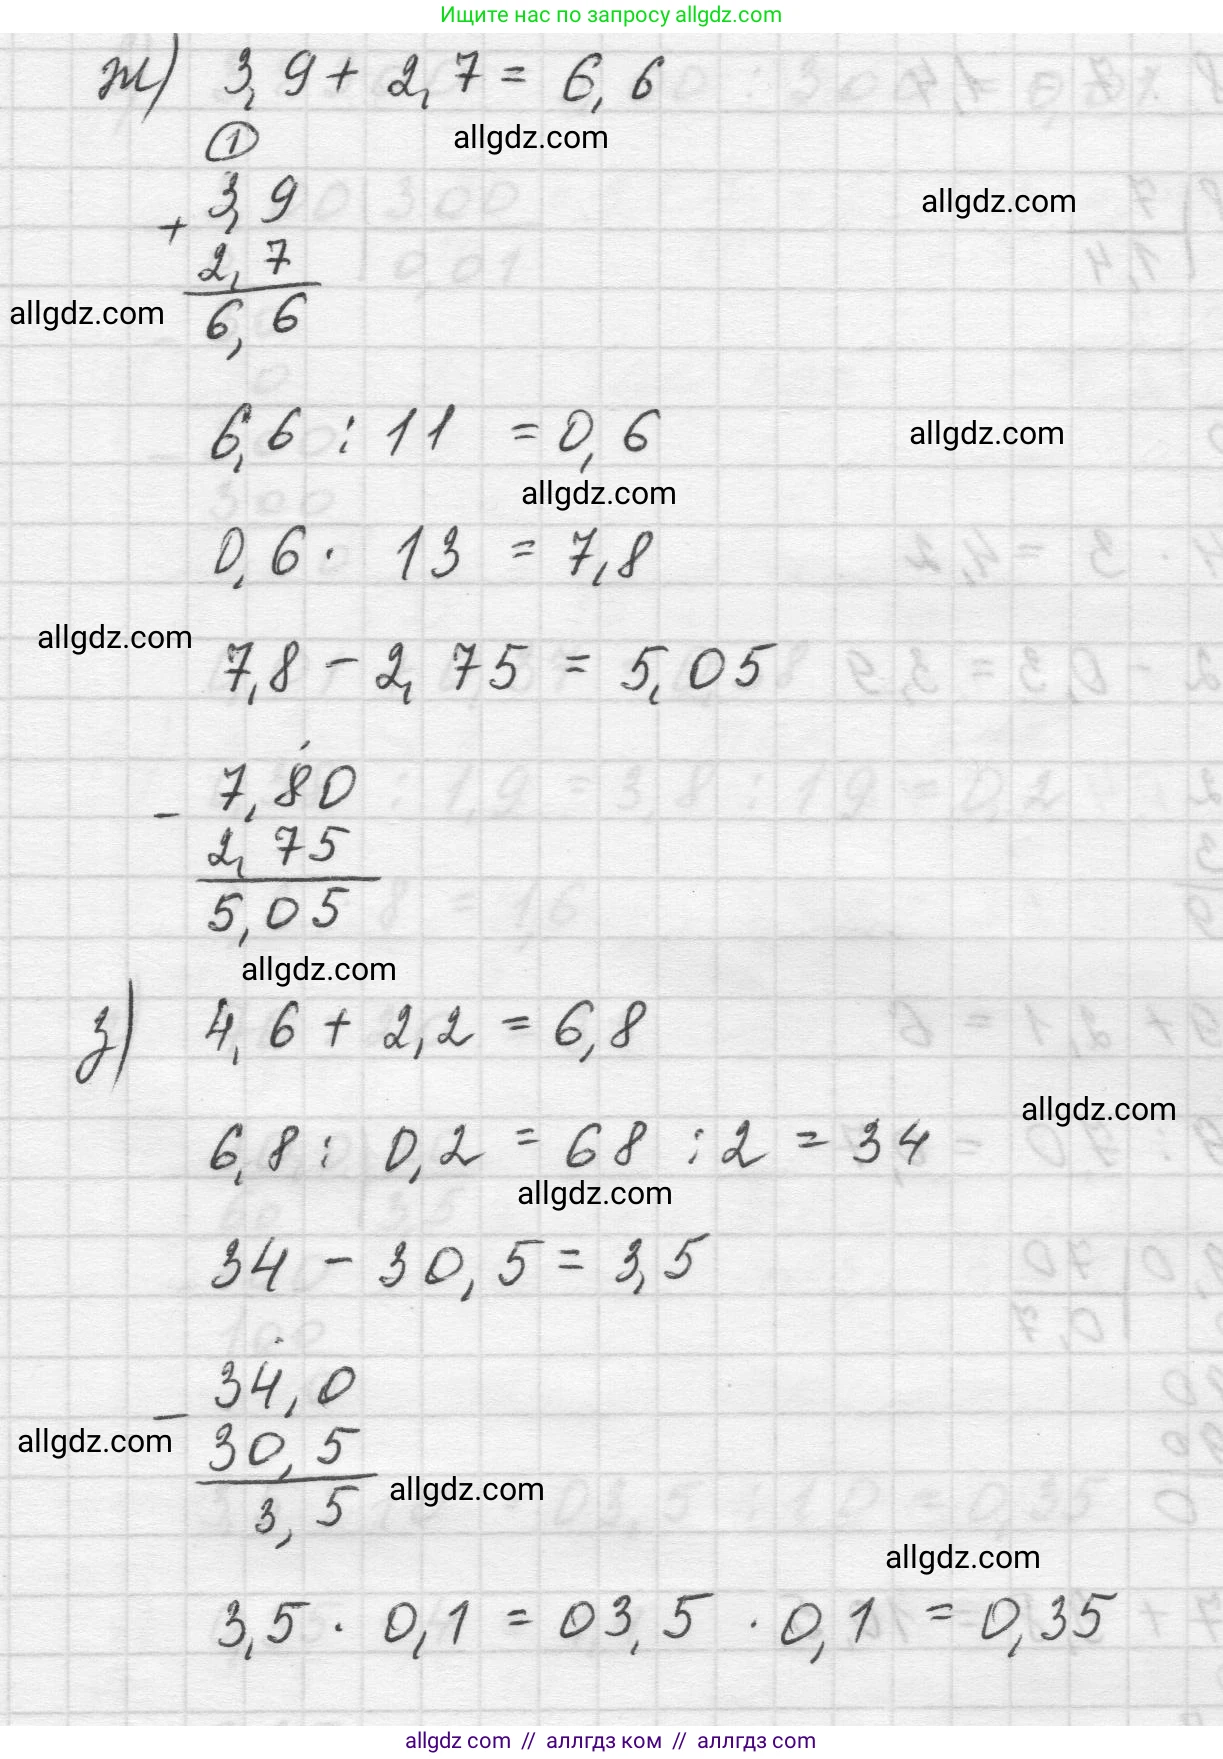 Ищите нас по запросу allgdz.com
ж) 3,9 + 2,7 = 6,6
allgdz.com
1
+ 3,9
allgdz.com
2,7
allgdz.com
6,6
6,6 : 11 = 0,6
allgdz.com
allgdz.com
0,6 · 13 = 7,8
allgdz.com
7,8 - 2,75 = 5,05
- 7,80
2,75
5,05
allgdz.com
з) 4,6 + 2,2 = 6,8
allgdz.com
6,8 : 0,2 = 68 : 2 = 34
allgdz.com
34 - 30,5 = 3,5
- 34,0
allgdz.com
30,5
allgdz.com
3,5
allgdz.com
3,5 · 0,1 = 03,5 · 0,1 = 0,35
allgdz.com // аллгдз ком // аллгдз.com